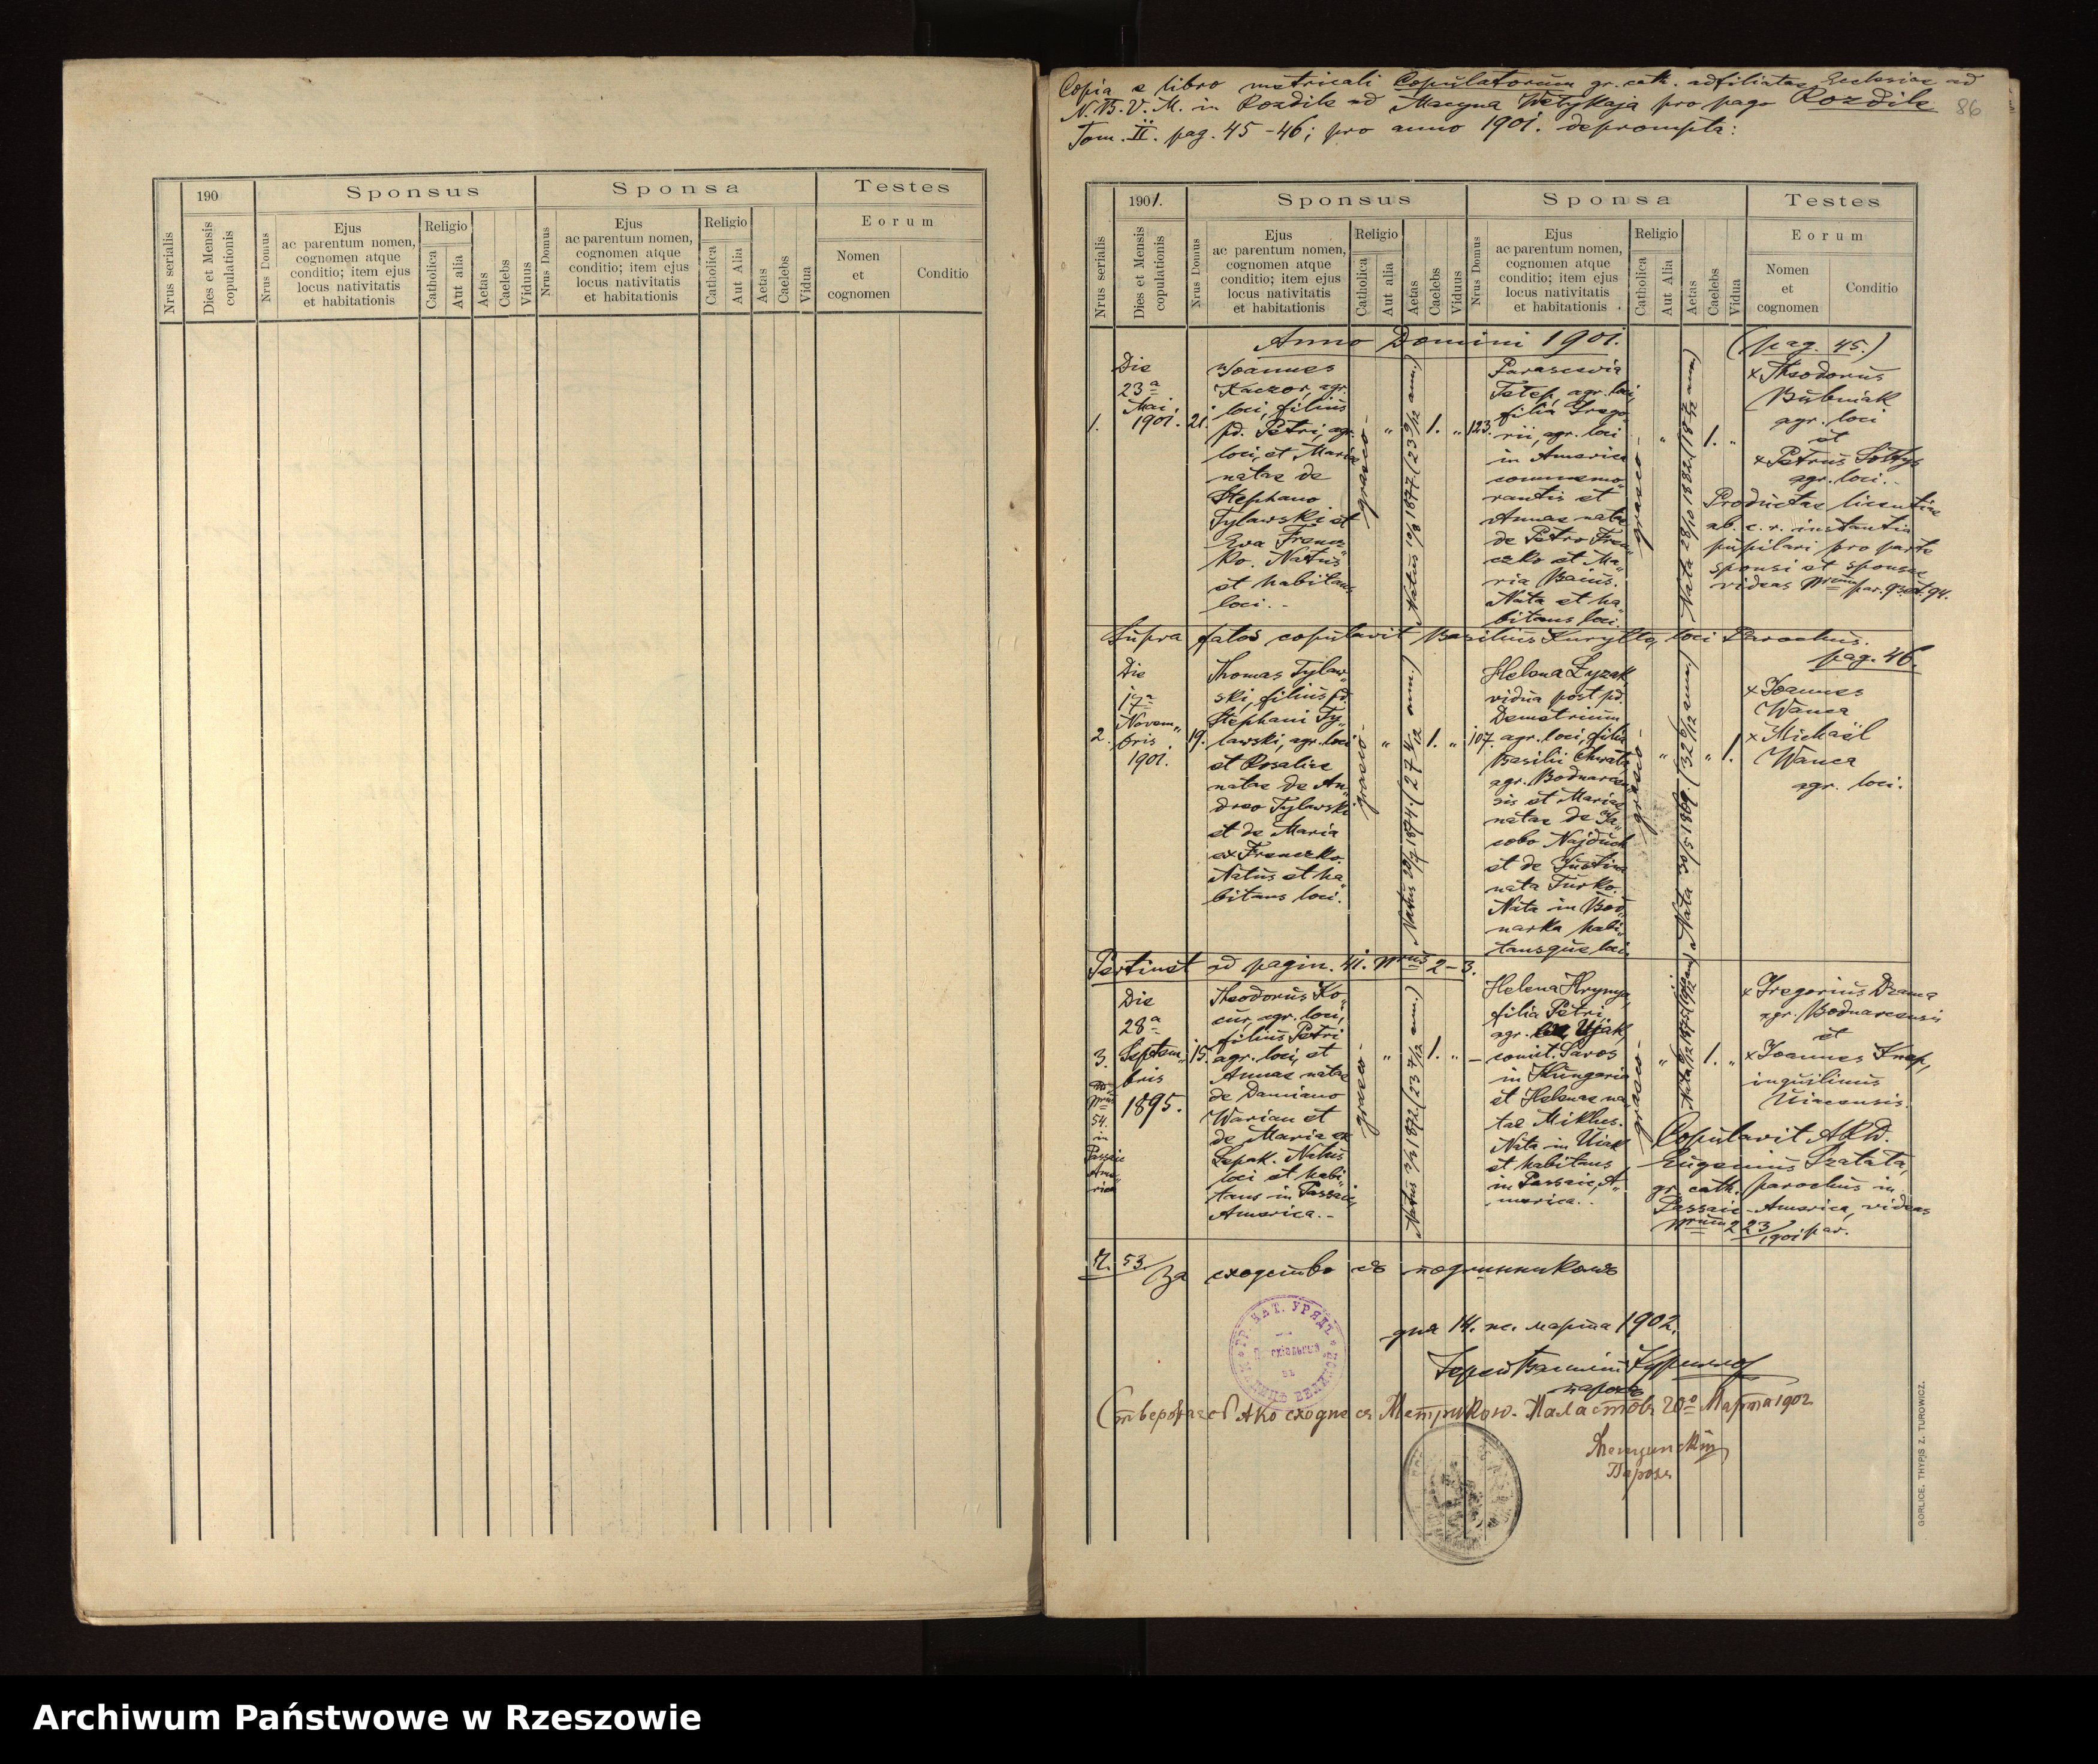 190
Sponsus
Sponsa
Testes
Nrus serialis
Dies et Mensis copulationis
Nrus Domus
Ejus
ac parentum nomen,
cognomen atque
conditio; item ejus
locus nativitatis
et habitationis
Religio
Catholica
Aut alia
Aetas
Caelebs
Viduus
Nrus Domus
Ejus
ac parentum nomen,
cognomen atque
conditio; item ejus
locus nativitatis
et habitationis
Religio
Catholica
Aut Alia
Aetas
Caelebs
Vidua
Eorum
Nomen
et
cognomen
Conditio
Copia e libro metricali Copulatorum gr. cath. adfiliatae Ecclesiae ad
N. B. V. M. in Rozdile ad Macyna Wełykaja pro pago Rozdile
86
Tom. II. pag. 45-46; pro anno 1901. deprompta:
1901.
Sponsus
Sponsa
Testes
Nrus serialis
Dies et Mensis copulationis
Nrus Domus
Ejus
ac parentum nomen,
cognomen atque
conditio; item ejus
locus nativitatis
et habitationis
Religio
Catholica
Aut alia
Aetas
Caelebs
Viduus
Nrus Domus
Ejus
ac parentum nomen,
cognomen atque
conditio; item ejus
locus nativitatis
et habitationis
Religio
Catholica
Aut Alia
Aetas
Caelebs
Vidua
Eorum
Nomen
et
cognomen
Conditio
Anno Domini 1901.
(pag. 45.)
1.
Die
23a
Mai.
1901.
21.
Joannes
Kaczor, agr.
loci, filius
pd. Petri, agr.
loci, et Mariae
natae de
Stephano
Tylawski et
Eva Frencz
ko. Natus
et habitans
loci.
graeco-
"
Natus 10/8 1877. (23 9/12 ann.)
1.
"
123.
Parascevia
Tetep, agr. loci,
filia Grego"
rii, agr. loci
in America
commemo"
rantis et
Annae natae
de Petro Fren"
czko et Ma"
ria Baius.
Nata et ha"
bitans loci.
graeco-
"
Nata 28/10 1882. (18 7/12 ann.)
1.
"
x Theodorus
Bubniak
agr. loci
et
x Petrus Sołtys
agr. loci.
Productae licentiae
ab. c. r. instantia
pupilari pro parte
sponsi et sponsae
videas Nrum par. 93. et 94.
Supra fatos copulavit Basilius Kuryłło, loci Parochus.
pag. 46.
2.
Die
17a
Novem"
bris
1901.
19.
Thomas Tylaw"
ski, filius pd.
Stephani Ty"
lawski, agr. loci
et Rosaliae
natae de An"
dreo Tylawski
et de Maria
ex Frenczko.
Natus et ha"
bitans loci.
graeco-
"
1.
"
107.
Helena Łyzak,
vidua post pd.
Demetrium
agr. loci, filia
Basilii Chwała
agr. Bodnaren"
sis et Mariae
natae de Ja"
cobo Najduch
et de Justina
nata Turko.
Nata in Bod"
narka habi"
tansque loci.
graeco-
"
Nata 30/5 1869. (32 6/12 ann.)
"
1.
x Joannes
Wanca
x Michaël
Wanca
agr. loci.
Pertinet ad pagin. 41. Nrus 2-3.
3.
Nrus
54.
in
Passaic
Ame"
rica
Die
28a
Septem"
bris
1895.
15.
Theodorus Ko"
cur, agr. loci,
filius Petri
agr. loci, et
Annae natae
de Damiano
Warian et
de Maria ex
Łepak. Natus
loci et habi"
tans in Passaic,
America.-
graeco-
"
1.
"
-
Helena Hrynya,
filia Petri,
agr. Ujak,
comit. Saros
in Hungaria
et Helenae na"
tae Miklus.
Nata in Uiak
et habitans
in Passaic, A"
merica.
graeco-
"
1.
"
x Gregorius Dzama
agr. Bodnarensis
et
x Joannes Knap,
inquilinus
Uiacensis.
Copulavit ARD.
Eugenius Szatała,
gr. cath. parochus in
Passaic - America, videas
Nrum 223/1901 par.
Ч. 53.
За сходство съ подлинникомъ
дня 14. н. марта 1902.
Іерей Василій Курилло
парохъ
ГР. КАТ. УРЯДЪ
Стверджаесѧ Яко сходне съ Метрикою. Маластовъ 20го Марта 1902
Парохъ
GORLICE, THYPIS Z. TUROWICZ.
Archiwum Państwowe w Rzeszowie